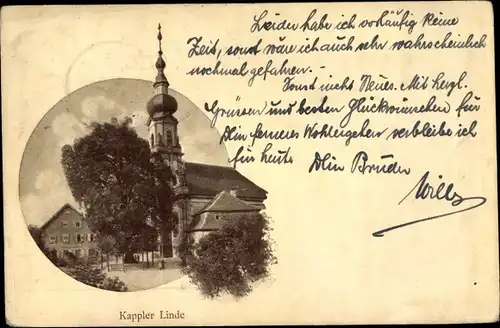 Leider habe ich vorläufig keine
Zeit, sonst wäre ich auch sehr wahrscheinlich
nochmal gefahren. –
Sonst nichts Neues. Mit herzl.
Grüssen und besten Glückwünschen für
Dein ferneres Wohlergehen verbleibe ich
für heute Dein Bruder
Willy
Kappler Linde